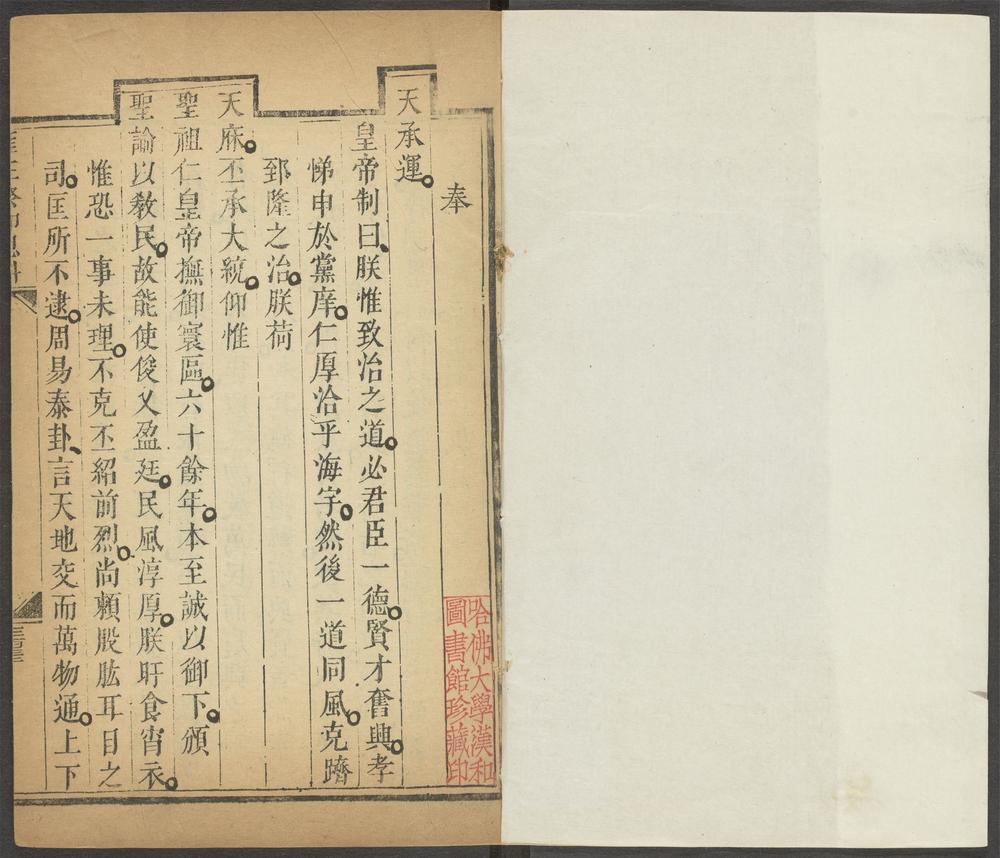 奉
天承運。
皇帝制曰、朕惟致治之道。必君臣一德。賢才奮興。孝
悌申於黨庠。仁厚洽乎海宇。然後一道同風。克躋
郅隆之治。朕荷
天庥。丕承大統。仰惟
聖祖仁皇帝撫御寰區。六十餘年。本至誠以御下。頒
聖諭以敎民。故能使俊乂盈廷。民風淳厚。朕旰食宵衣。
惟恐一事未理。不克丕紹前烈。尚賴股肱耳目之
司。匡所不逮。周易泰卦、言天地交而萬物通。上下
哈佛大學漢和
圖書館珍藏印